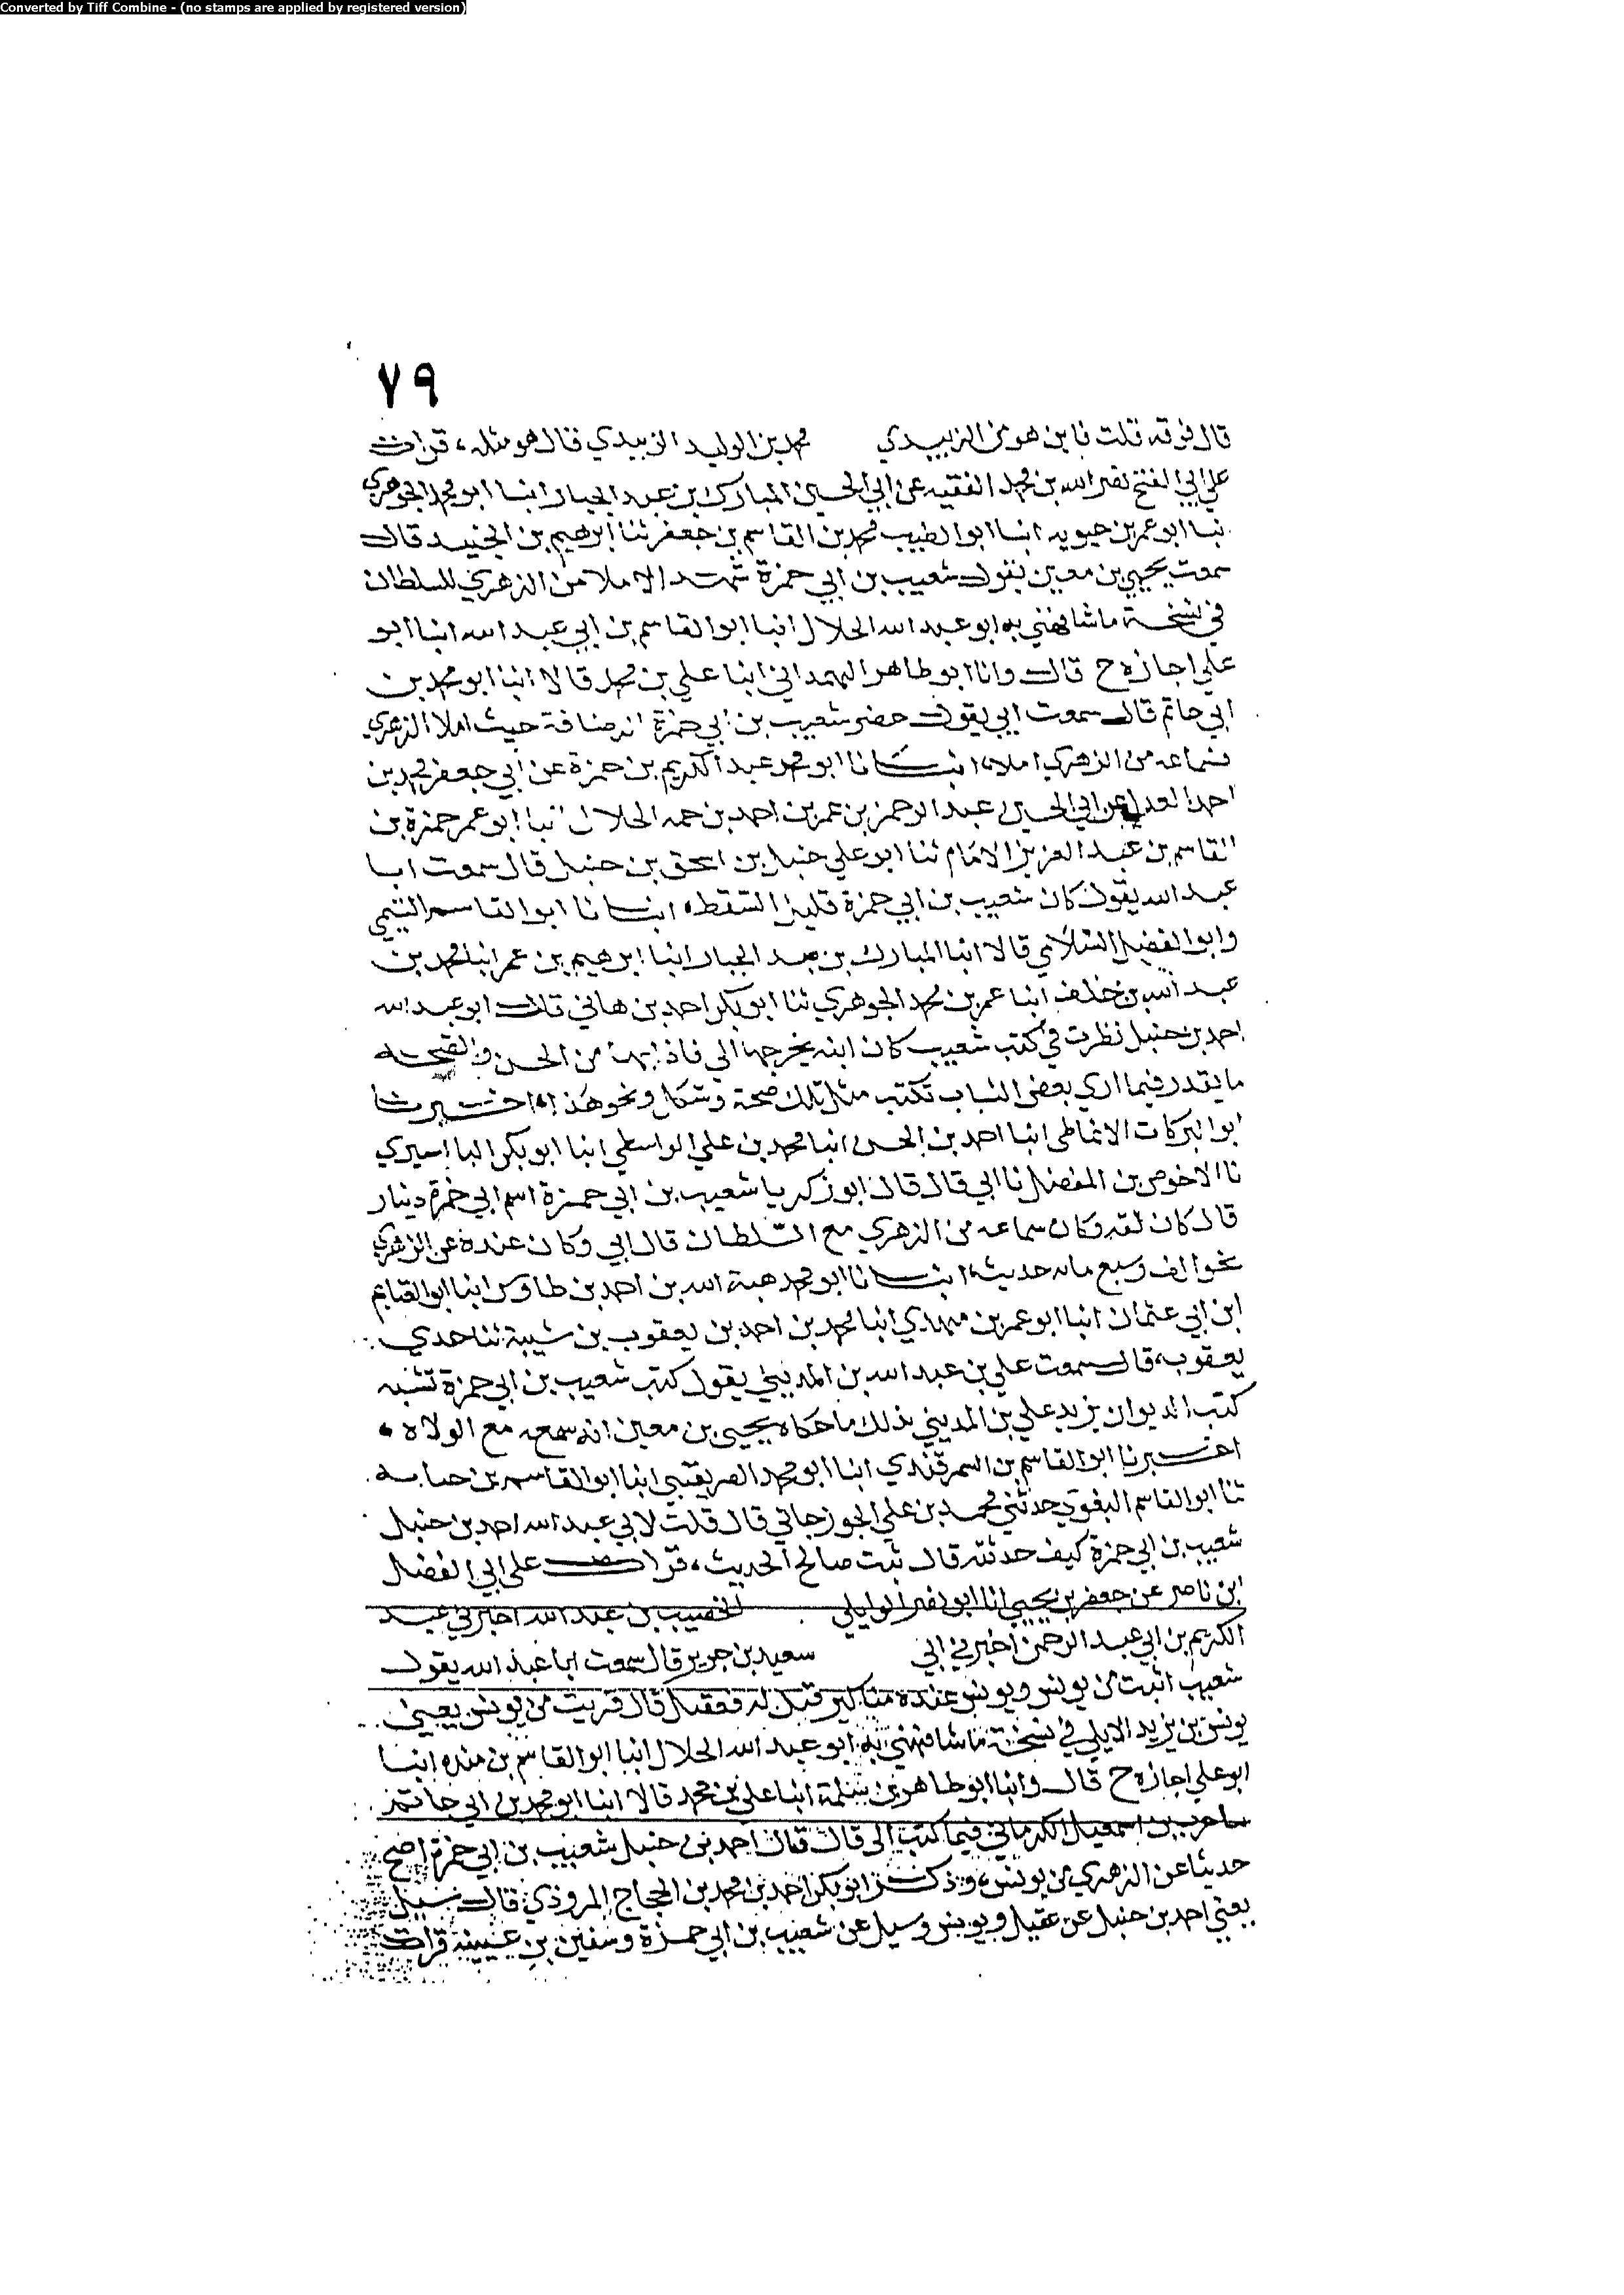 Converted by Tiff Combine - (no stamps are applied by registered version)
٧٩
قال فوقه قلت فاين هو من الزبيدي محمد بن الوليد الزبيدي قال هو مثله، قرات
علي ابي الفتح نصر الله بن محمد الفقيه عن ابي الحسين المبارك بن عبد الجبار انبا ابو محمد الجوهري
نبا ابو عمر بن حيويه انبا ابو الطيب محمد بن القاسم بن جعفر ثنا ابرهيم بن الجنيد قال
سمعت يحيى بن معين يقول شعيب بن ابي حمزة شهد الاملا من الزهري للسلطان
في نسخة ما شافهني به ابو عبد الله الخلال انبا ابو القاسم بن ابي عبد الله انبا ابو
علي اجازه ح قال وانا ابو طاهر الهمداني انبا علي بن محمد قالا انبا ابو محمد بن
ابي حاتم قال سمعت ابي يقول حضر شعيب بن ابي حمزة الرصافة حيث املا الزهري
فسماعه من الزهري املاء، انبانا ابو محمد عبد الكريم بن حمزة عن ابي جعفر محمد بن
احمد العدل عن ابي الحسين عبد الرحمن بن عمر بن احمد بن حمه الخلال انبا ابو عمر حمزة بن
القاسم بن عبد العزيز الامام ثنا ابو علي حنبل بن اسحق بن حنبل قال سمعت ابا
عبد الله يقول كان شعيب بن ابي حمزة قليل السقط، انبانا ابو القاسم التيمي
وابو الفضل السلامي قالا انبا المبارك بن عبد الجبار انبا ابرهيم بن عمر انبا محمد بن
عبد الله بن خلف انبا عمر بن محمد الجوهري ثنا ابو بكر احمد بن هاني قال ابو عبد الله
احمد بن حنبل نظرت في كتب شعيب كان ابنه يخرجها الي فاذا بها من الحسن والصحه
ما يقدر فيما اري بعض الشباب تكتب مثل تلك صحة وشكل ونحو هذا، اخبرنا
ابو البركات الانماطي انبا احمد بن الحسن انبا محمد بن علي الواسطي انبا ابو بكر البابسيري
نا الاحوص بن المفضل نا ابي قال قال ابو زكريا شعيب بن ابي حمزة اسم ابي حمزة دينار
قال كان ثقه وكان سماعه من الزهري مع السلطان قال ابي وكان عنده عن الزهري
نحو الف وسبع مايه حديث، انبانا ابو محمد هبة الله بن احمد بن طاوس انبا ابو الغنايم
ابن ابي عثمان انبا ابو عمر بن مهدي انبا محمد بن احمد بن يعقوب بن شيبة ثنا جدي
يعقوب، قال سمعت علي بن عبد الله بن المديني يقول كتب شعيب بن ابي حمزة تشبه
كتب الديوان يريد علي بن المديني بذلك ما حكاه يحيى بن معين انه سمع مع الولاه
اخبرنا ابو القاسم بن السمرقندي انبا ابو محمد الصريفيني انبا ابو القاسم بن حبابه
ثنا ابو القاسم البغوي حدثني محمد بن علي الجوزجاني قال قلت لابي عبد الله احمد بن حنبل
شعيب بن ابي حمزة كيف حدثته قال ثبت صالح الحديث، قرات على ابي الفضل
ابن ناصر عن جعفر بن يحيى انا ابو نصر الوايلي الخصيب بن عبد الله اخبرني عبد
الكريم بن ابي عبد الرحمن اخبرني ابي سعيد بن جرير قال سمعت ابا عبد الله يقول
شعيب اثبت من يونس ويونس عنده مناكير قيل له فعقيل قال قريب من يونس يعني
يونس بن يزيد الايلي في نسخة ما شافهني به ابو عبد الله الخلال انبا ابو القاسم بن منده انبا
ابو علي اجازه ح قال وانبا ابو طاهر بن سلمة انبا علي بن محمد قالا انبا ابو محمد بن ابي حاتم
نا حرب بن اسمعيل الكرماني فيما كتب الي قال قال احمد بن حنبل شعيب بن ابي حمزة اصح
حديثا عن الزهري من يونس، وذكر ابو بكر احمد بن محمد بن الحجاج المروذي قال سيل
يعني احمد بن حنبل عن عقيل ويونس وسيل عن شعيب بن ابي حمزة وسفين بن عيينة قرات